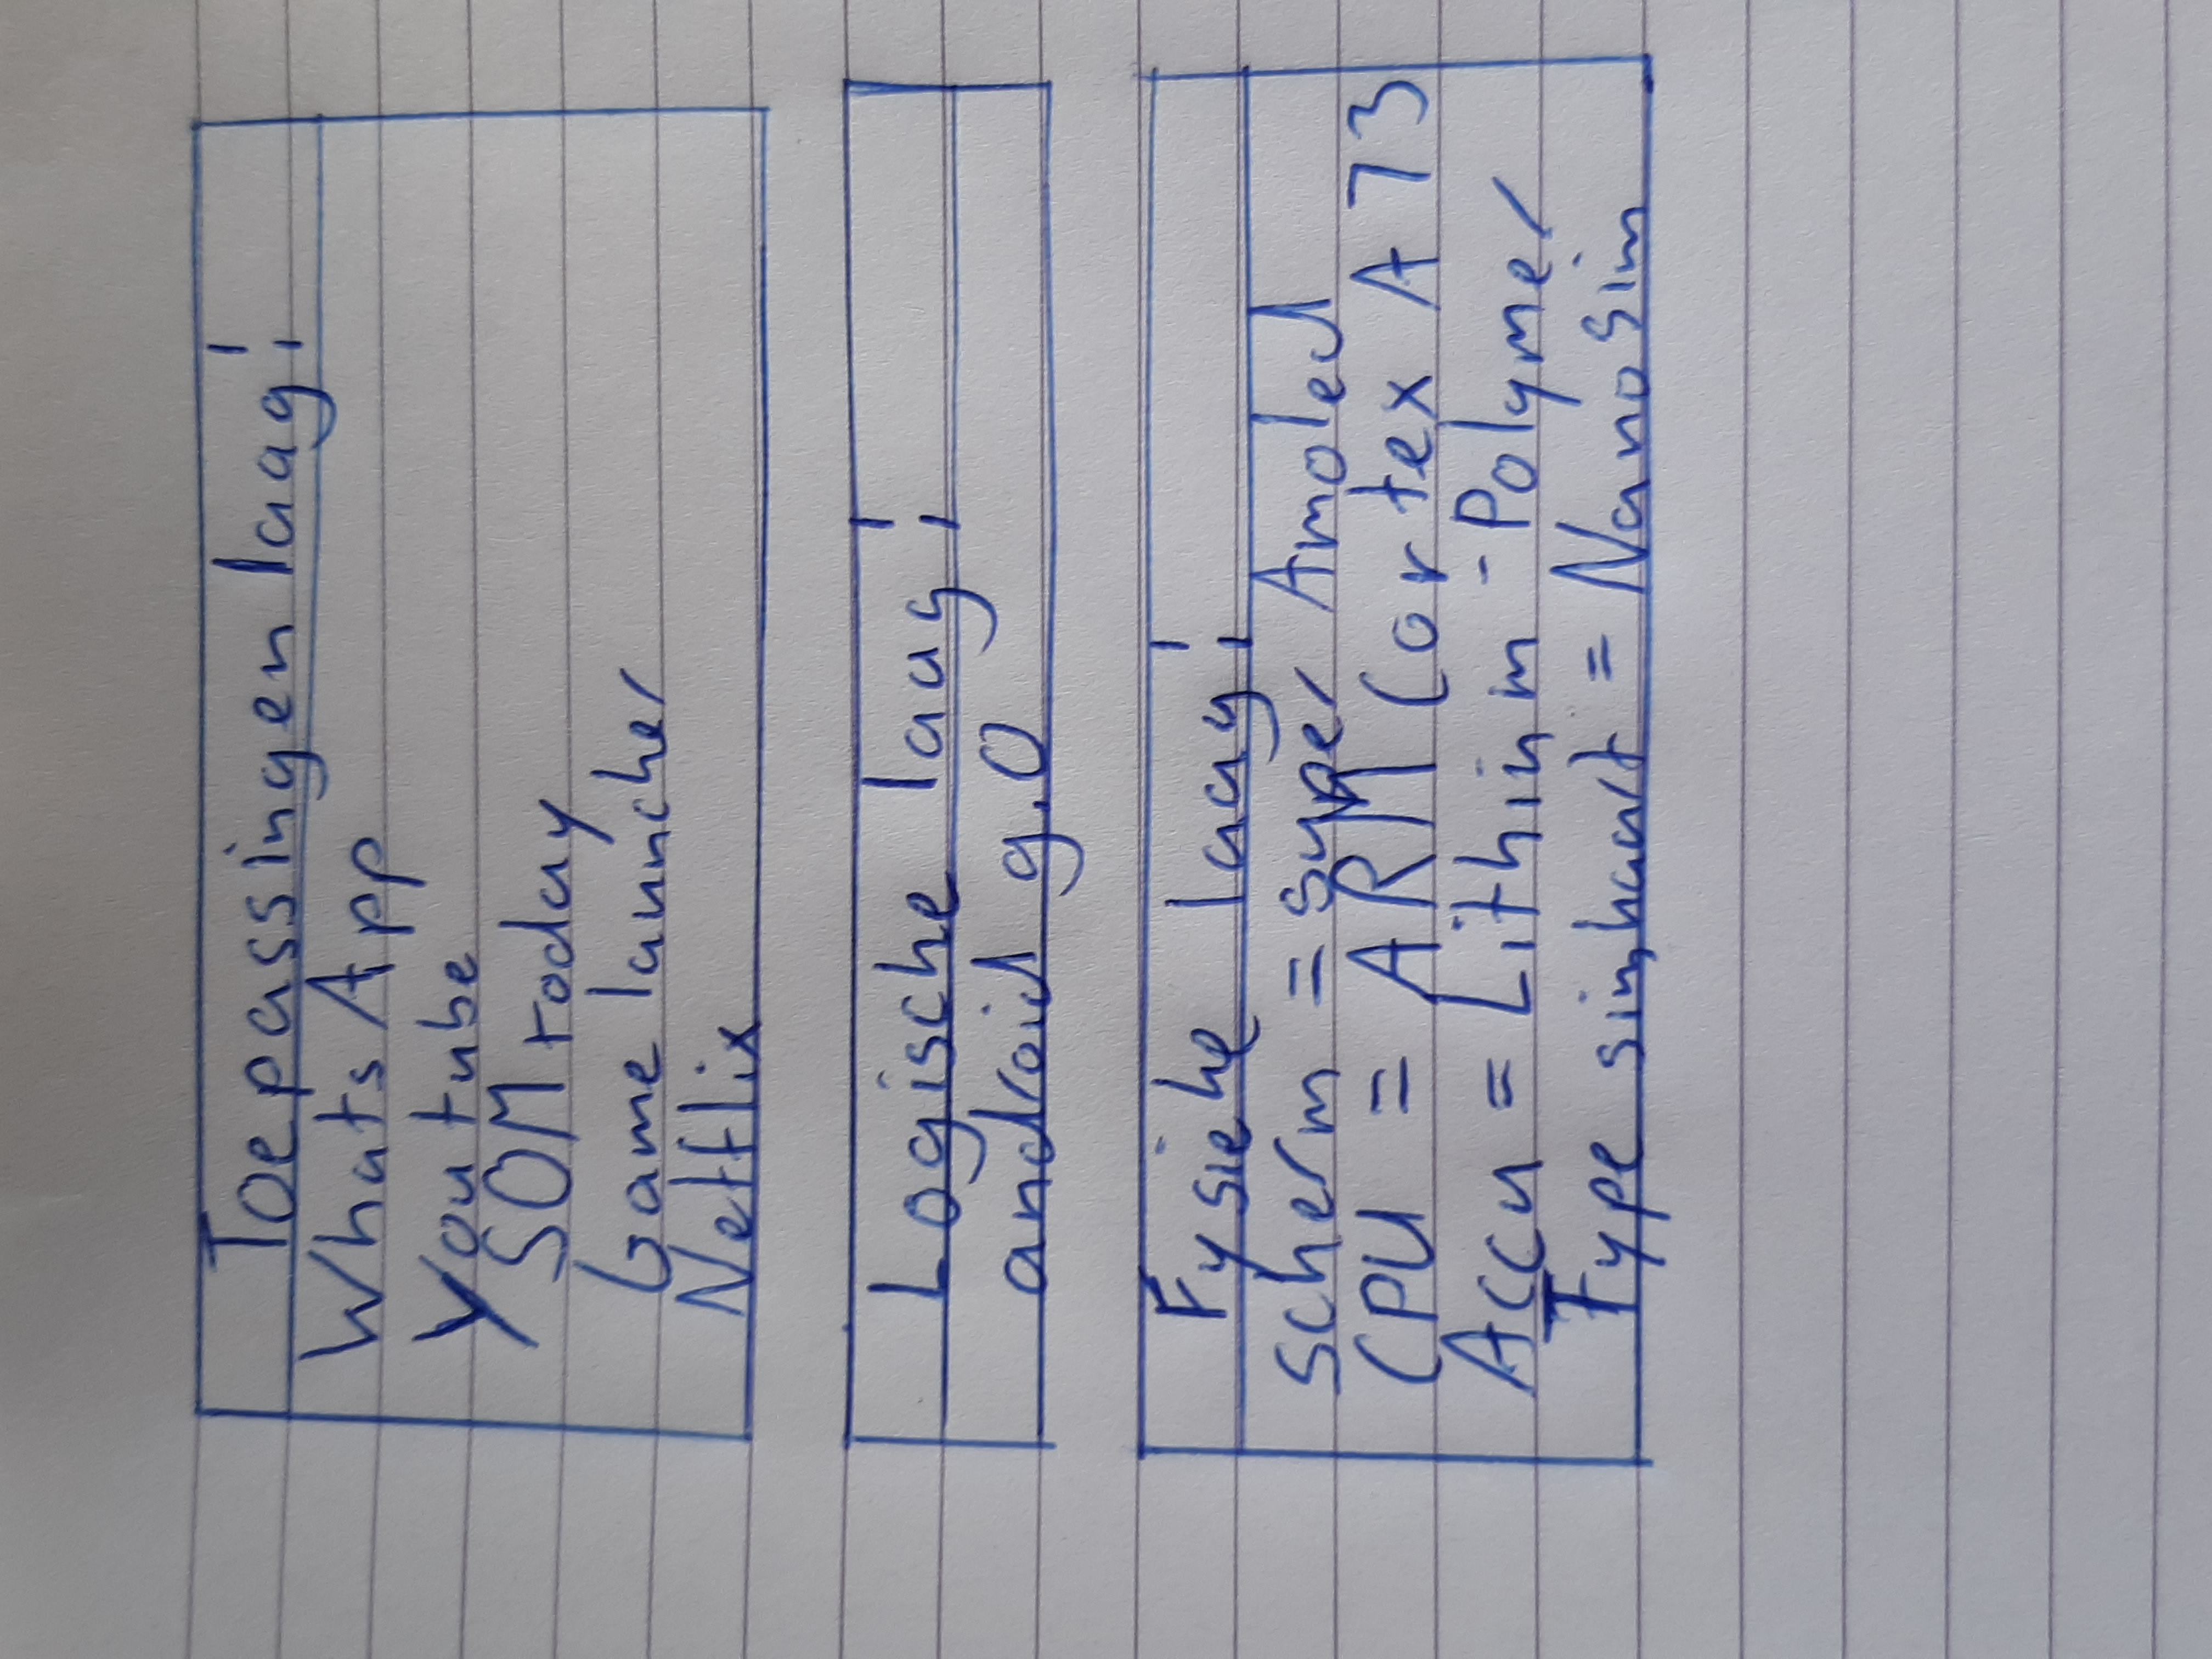 Toepassingen laag!
WhatsApp
Youtube
SOMtoday
Game launcher
Netflix
Logische laag!
android 9.0
Fysieke laag!
scherm = super Amoled
CPU = ARM Cortex A 73
Accu = Lithium-Polymer
Type simkaart = Nanosim